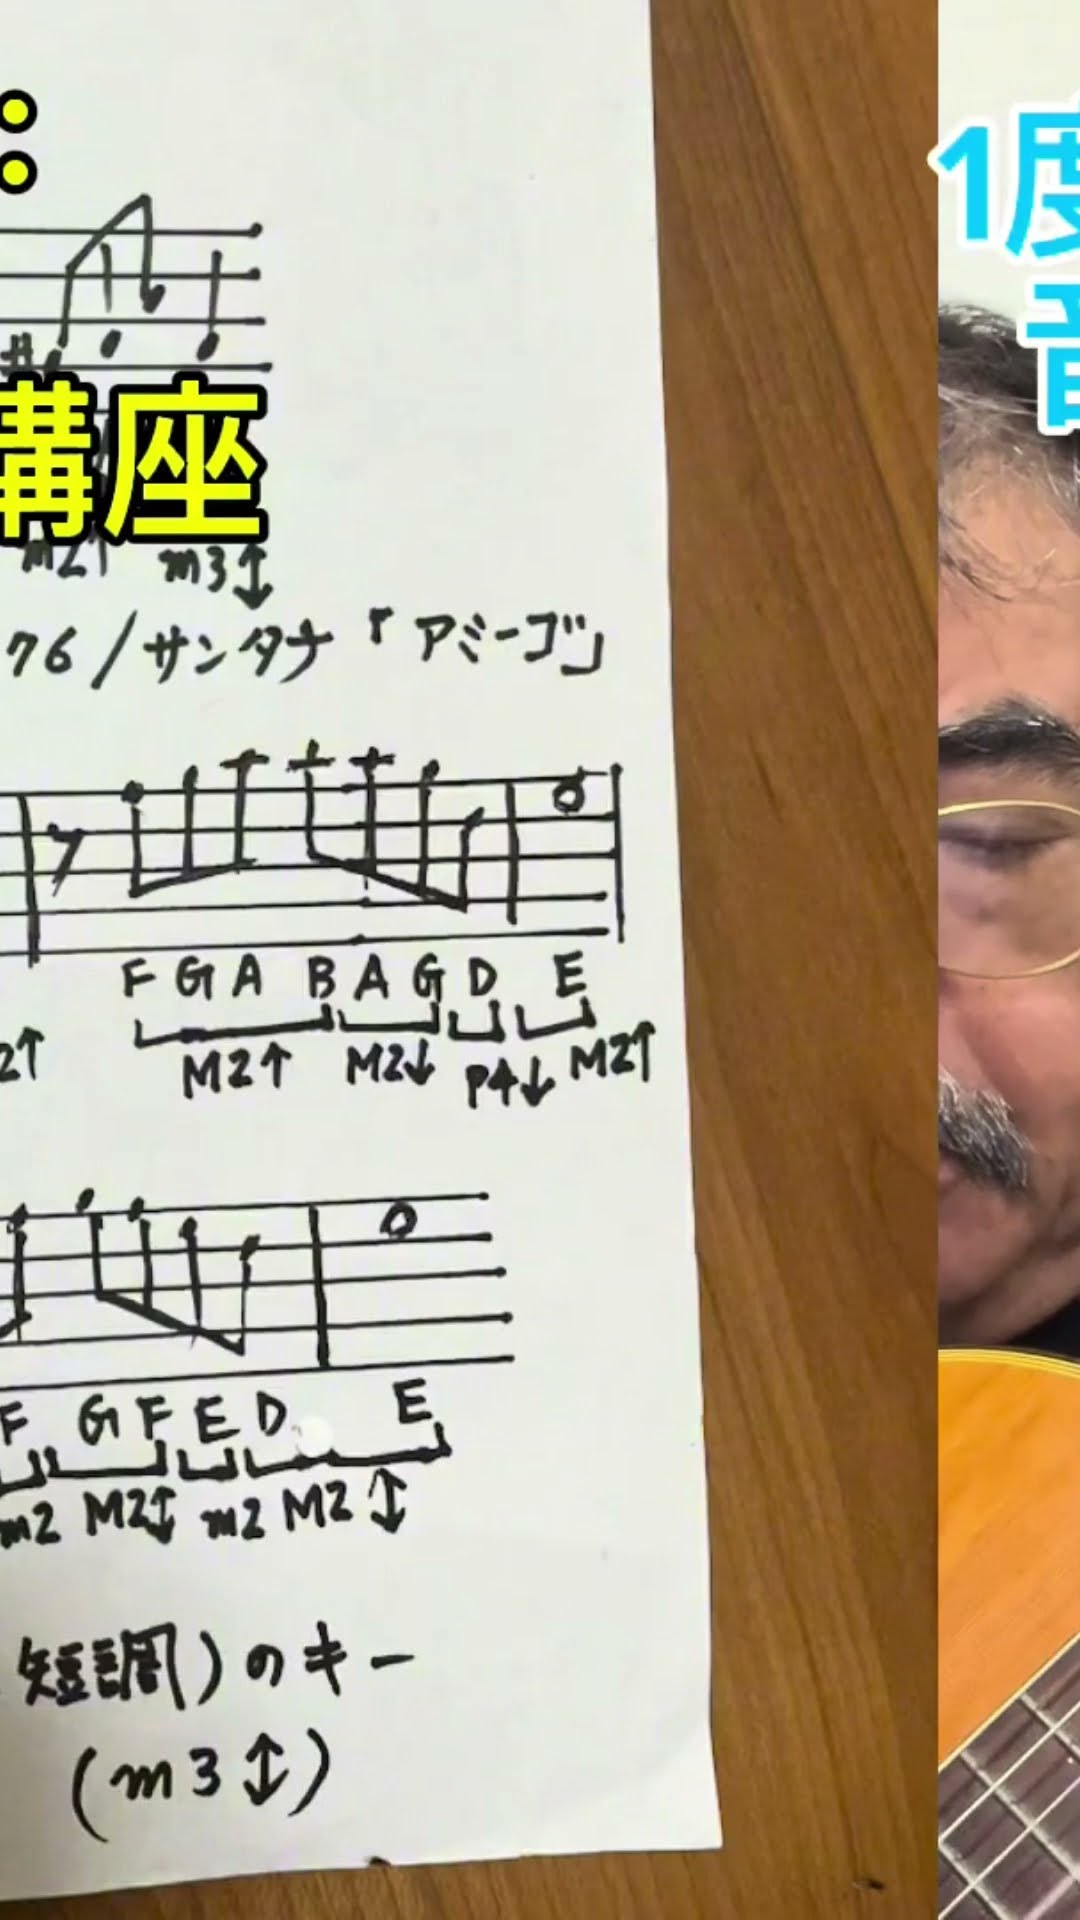 :
1度
音
講座
m2↑ m3↕
76/サンタナ「アミーゴ」
F G A B A G D E
2↑ M2↑ M2↓ P4↓ M2↑
F G F E D E
m2 M2↕ m2 M2↕
短調)のキー
(m3↕)